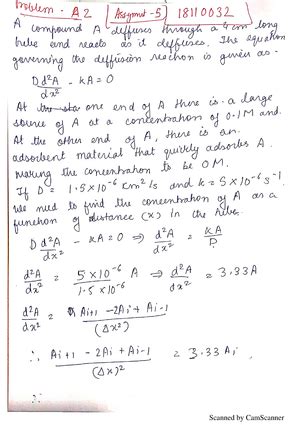 Problem - A2 Assignment-5 18110032
A compound A diffuses through a 4 cm long
tube and reacts as it diffuses. The equation
governing the diffusion reaction is given as -
D d²A/dx² - kA = 0
At one end of A there is a large
source of A at a concentration of 0.1 M and.
At the other end of A, there is an
adsorbent material that quickly adsorbes A.
making the concentration to be 0 M.
If D = 1.5 × 10⁻⁶ cm²/s and k = 5 × 10⁻⁶ s⁻¹.
we need to find the concentration of A as a
function of distance (x) in the tube.
D d²A/dx² - kA = 0 ⇒ d²A/dx² = kA/D
d²A/dx² = 5 × 10⁻⁶/1.5 × 10⁻⁶ A ⇒ d²A/dx² = 3.33A
d²A/dx² = Ai+1 - 2Ai + Ai-1/(Δx²)
∴ Ai+1 - 2Ai + Ai-1/(Δx)² = 3.33 Ai
Scanned by CamScanner